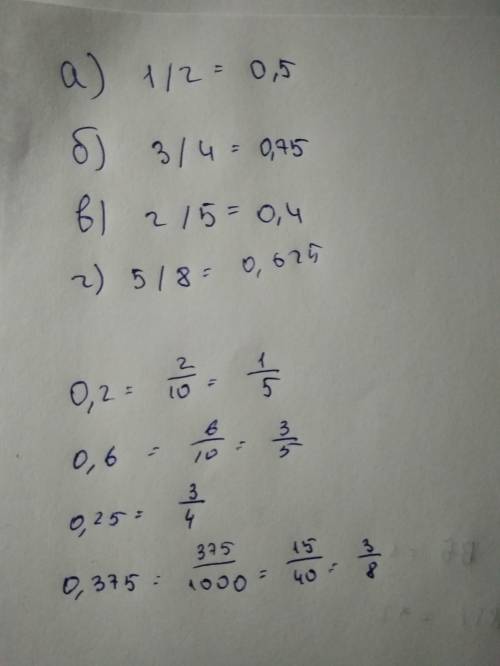 а) 1/2 = 0,5
б) 3/4 = 0,75
в) 2/5 = 0,4
г) 5/8 = 0,625
0,2 = 2/10 = 1/5
0,6 = 6/10 = 3/5
0,25 = 3/4
0,375 = 375/1000 = 15/40 = 3/8